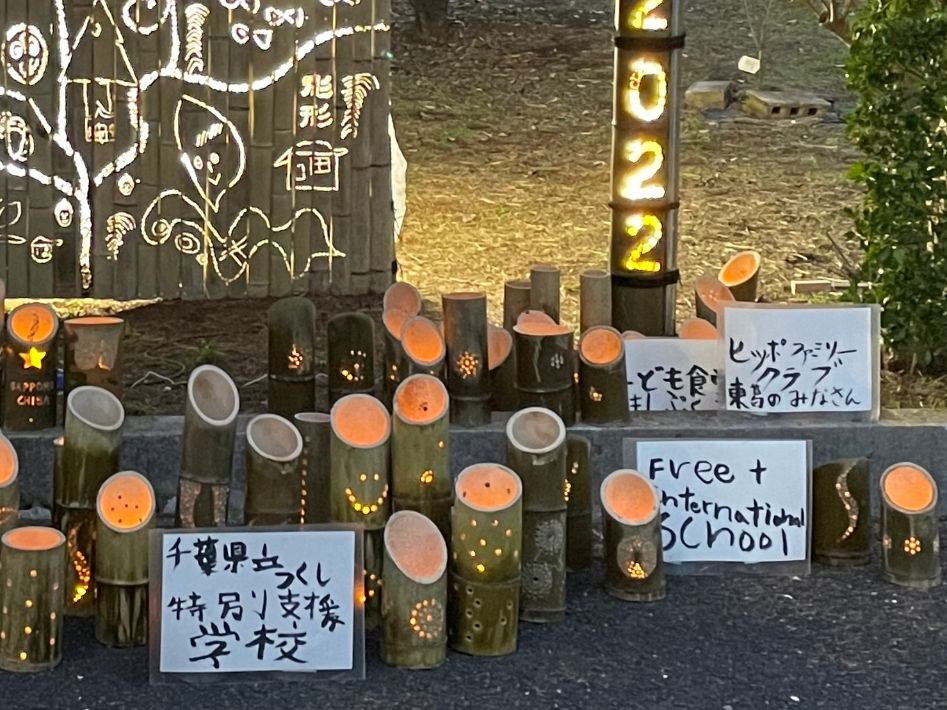 2022
ヒッポファミリー
クラブ
東葛のみなさん
ども食
Free +
International
School
千葉県立つくし
特別支援
学校
SAPPORO
CHIBA